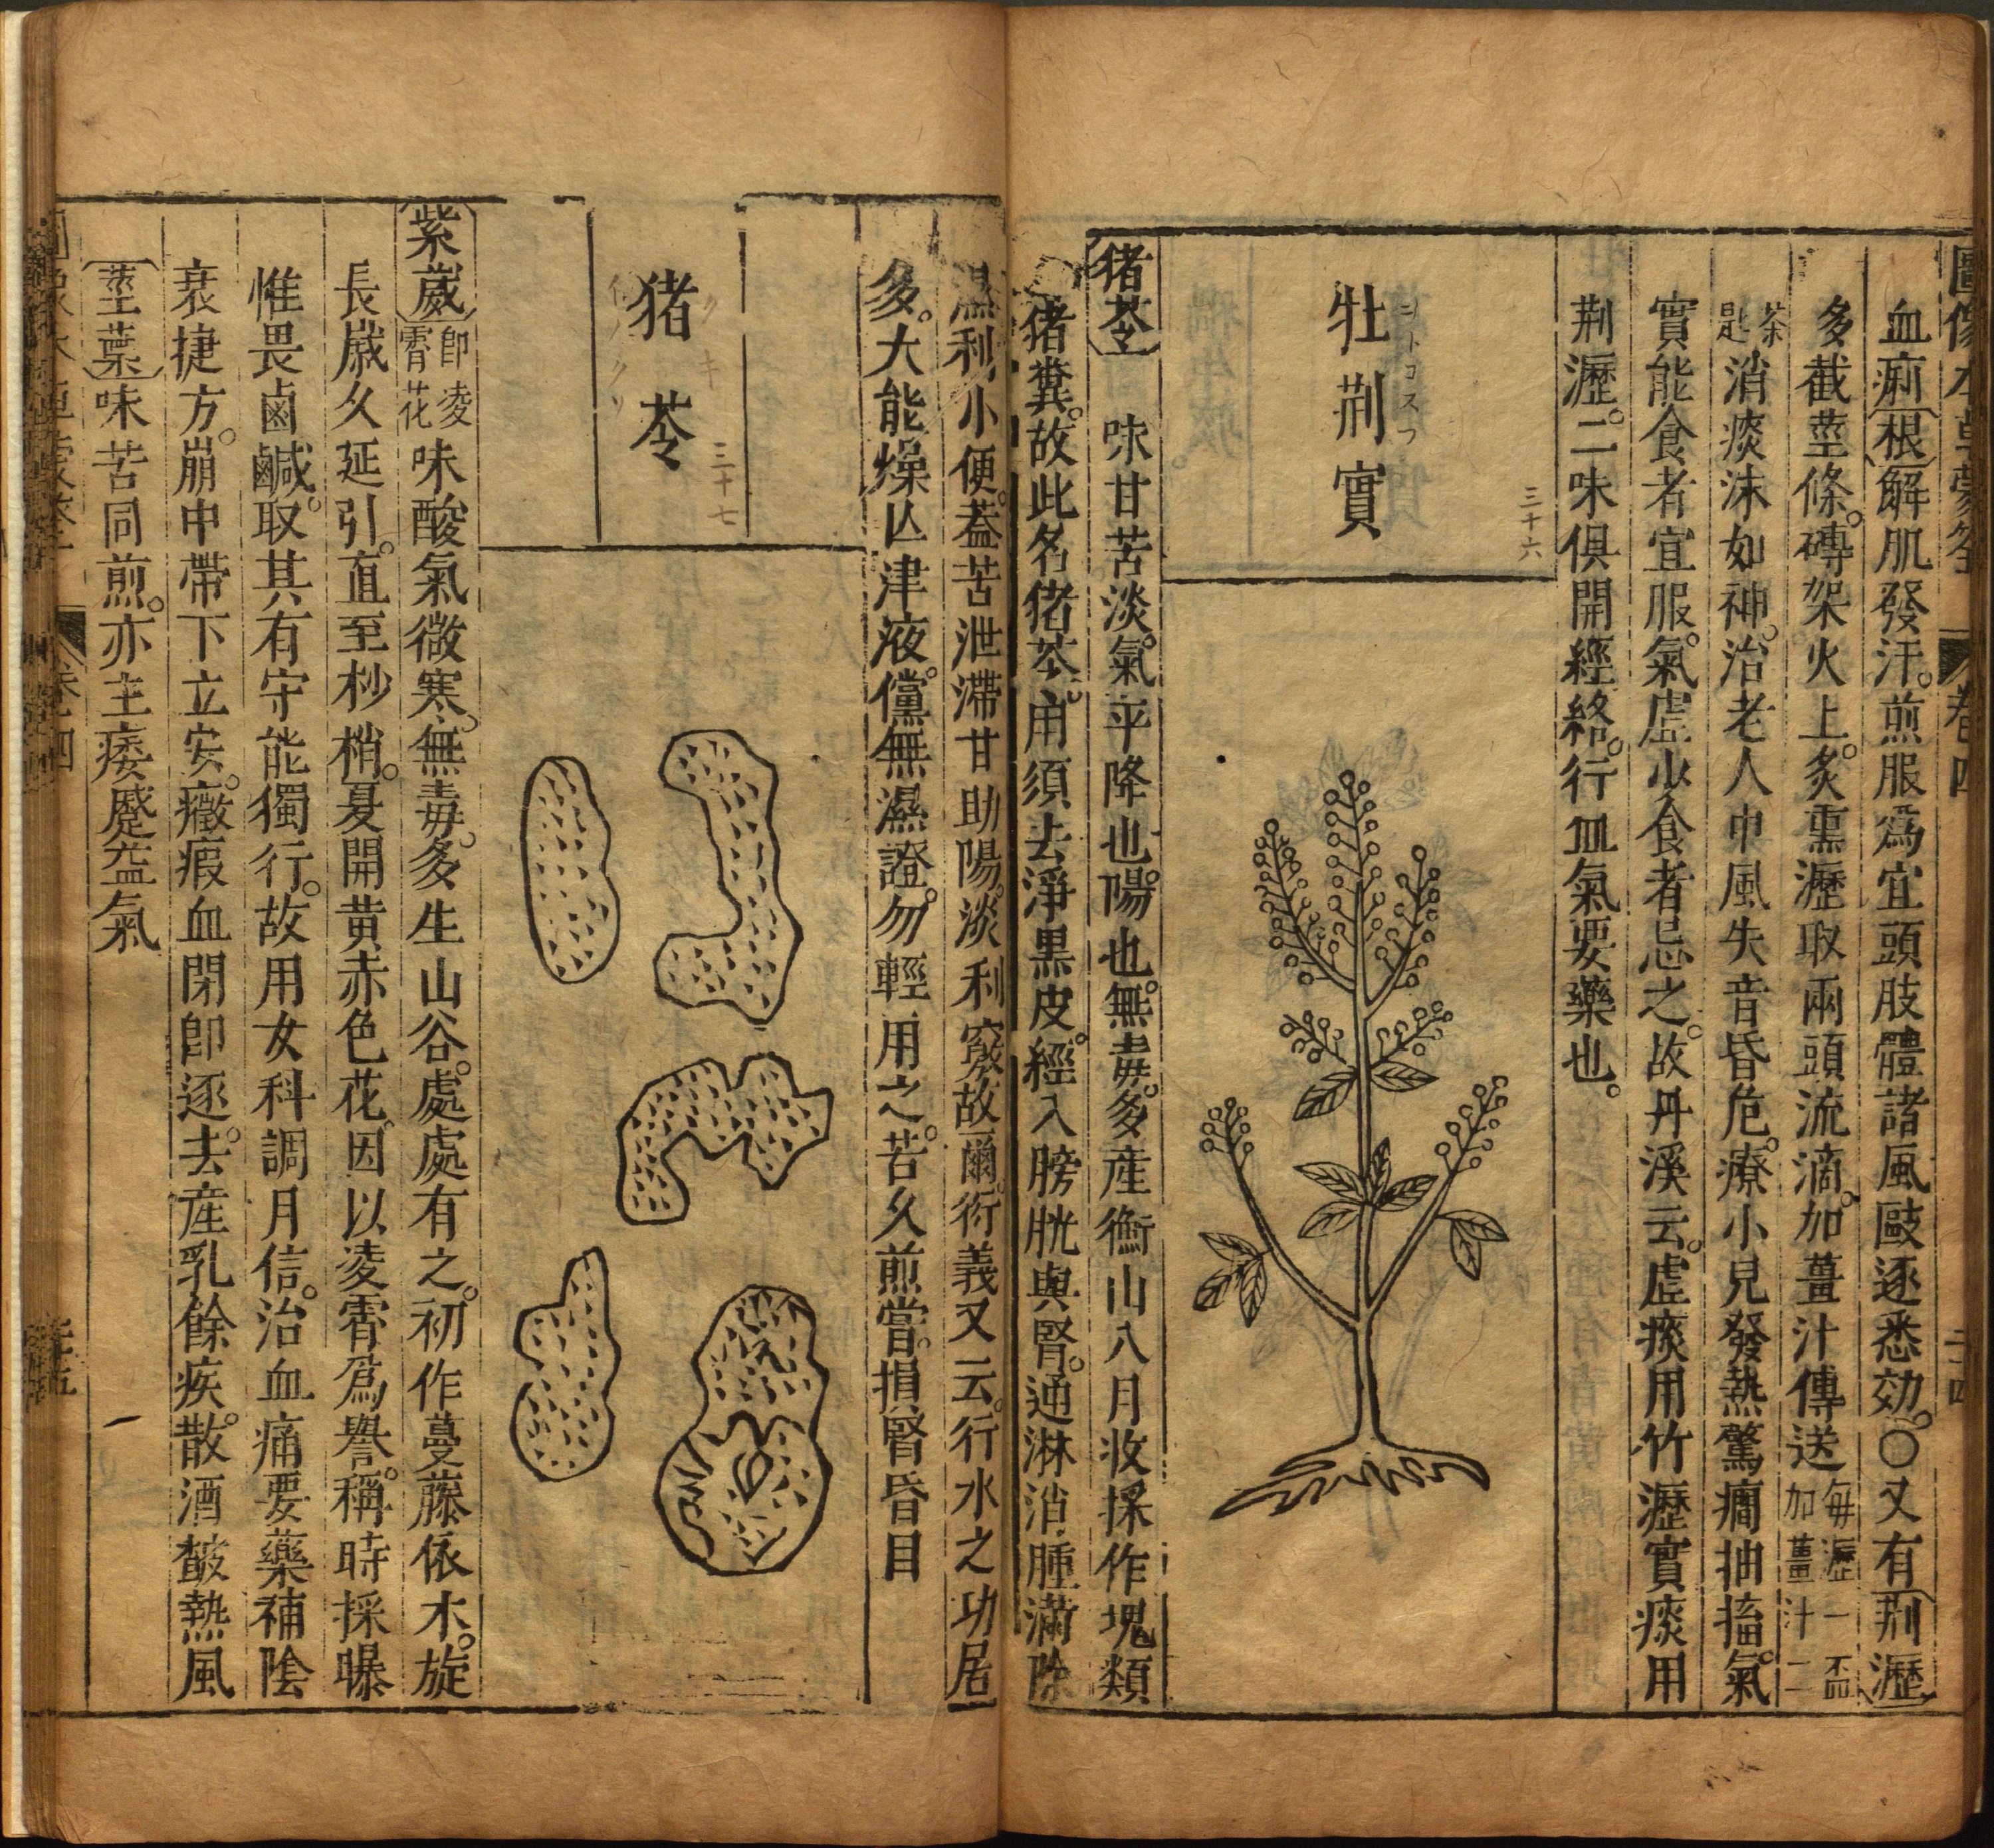 圖像本草蒙筌 卷四
血痢根解肌發汗。煎服爲宜頭肢體諸風敺逐悉効。○又有荆瀝
多截莖條。磚架火上。炙熏瀝取兩頭流滴。加薑汁傳送每瀝一盃加薑汁二
茶匙消痰沫如神。治老人中風失音昏危。療小兒發熱驚癎抽搐。氣
實能食者宜服。氣虛少食者忌之。故丹溪云。虛痰用竹瀝實痰用
荆瀝。二味俱開經絡。行血氣要藥也。
三十六
牡荆實
猪苓 味甘苦淡。氣平降也。陽也。無毒。多産衡山八月收採作塊類
猪糞。故此名猪苓。用須去淨黒皮。經入膀胱與腎。通淋消腫滿除
濕利小便。蓋苦泄滯甘助陽。淡利竅故爾。衍義又云。行水之功居
多。大能燥亾津液。儻無濕證。勿輕用之。苦久煎嘗。損腎昏目
三十七
猪苓
紫葳即凌霄花味酸氣微寒。無毒。多生山谷。處處有之。初作蔓藤依木。旋
長歲久延引。直至杪梢。夏開黄赤色花。因以凌霄爲譽。稱時採曝
惟畏鹵鹹。取其有守能獨行。故用女科調月信。治血痛要藥補陰
衰捷方。崩中帶下立安。癥瘕血閉卽逐。去産乳餘疾。散酒皶熱風
莖葉味苦同煎。亦主痿蹙益氣